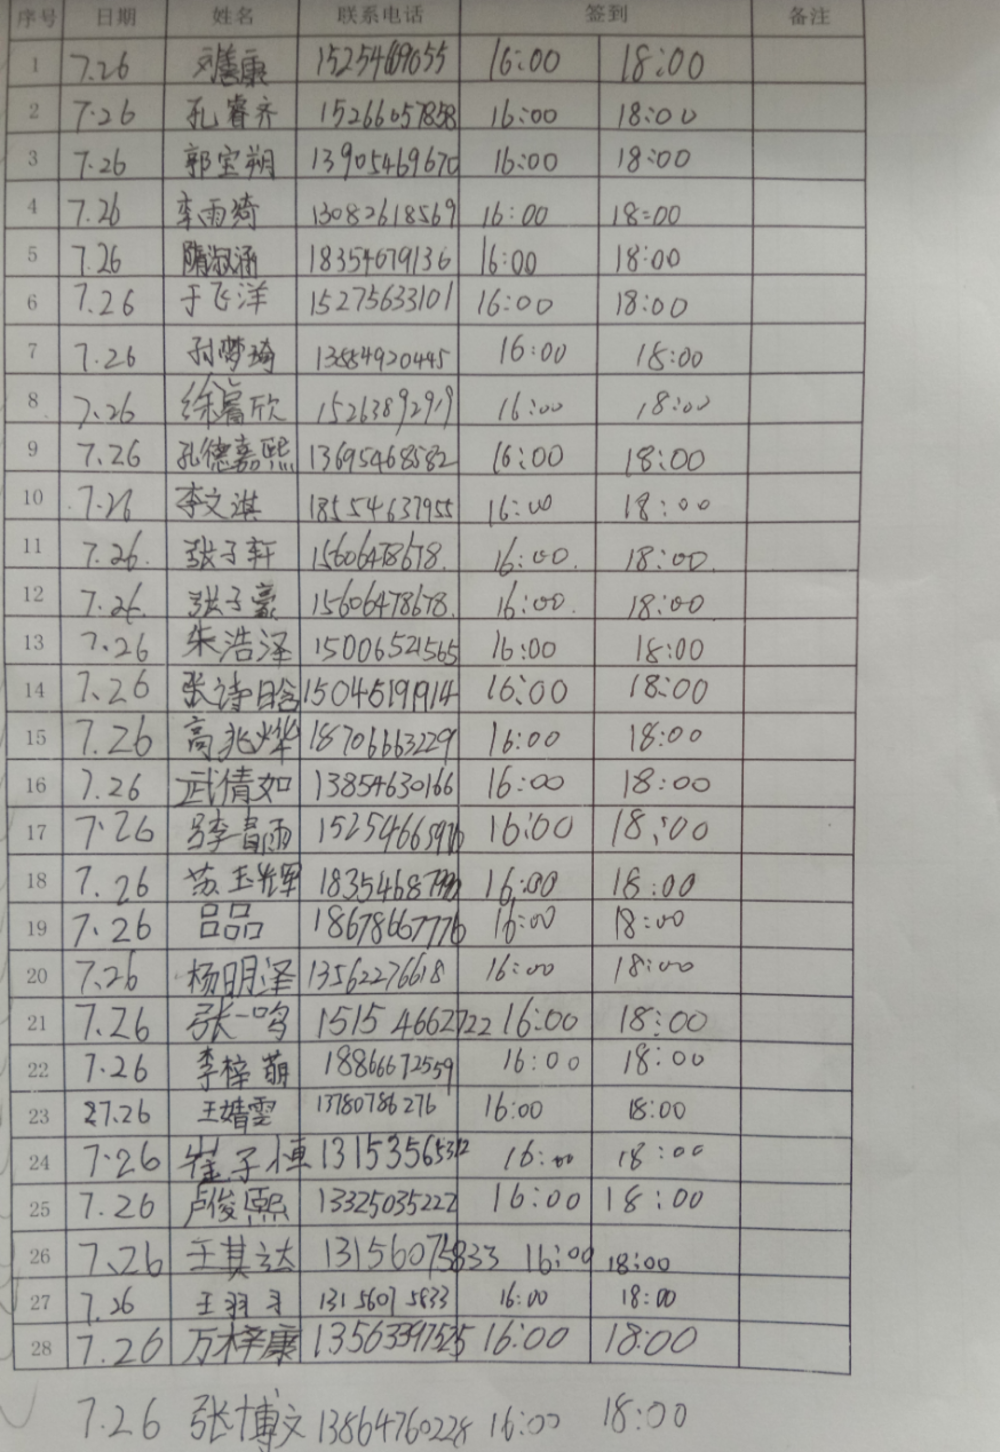 序号 日期 姓名 联系电话 签到 备注
1 7.26 刘善康 16:00 18:00
2 7.26 孔睿齐 15266057858 16:00 18:00
3 7.26 郭宝朔 13905469670 16:00 18:00
4 7.26 李雨绮 13082618569 16:00 18:00
5 7.26 隋淑涵 18354679136 16:00 18:00
6 7.26 于飞洋 15275633101 16:00 18:00
7 7.26 孙梦琦 16:00 18:00
8 7.26 15263892919 16:00 18:00
9 7.26 孔德嘉熙 13695468582 16:00 18:00
10 7.26 李文淇 18554637955 16:00 18:00
11 7.26. 张子轩 15606478678. 16:00. 18:00.
12 7.26. 张子豪 15606478678. 16:00. 18:00
13 7.26 朱浩泽 15006521565 16:00 18:00
14 7.26 张诗晗 15045191914 16:00 18:00
15 7.26 高兆烨 18706663229 16:00 18:00
16 7.26 武倩如 13854630166 16:00 18:00
17 7.26 16:00 18:00
18 7.26 苏玉辉 16:00 18:00
19 7.26 吕品 18678667776 16:00 18:00
20 7.26 杨明泽 13562276618 16:00 18:00
21 7.26 张一鸣 15154662722 16:00 18:00
22 7.26 李梓萌 18866672559 16:00 18:00
23 7.26 王婧雯 13780786276 16:00 18:00
24 7.26 崔子恒 16:00 18:00
25 7.26 卢俊熙 13325035222 16:00 18:00
26 7.26 王其达 13156075833 16:00 18:00
27 7.26 王羽子 13156075833 16:00 18:00
28 7.26 万梓康 13563397525 16:00 18:00
7.26 张博文 13864760228 16:00 18:00